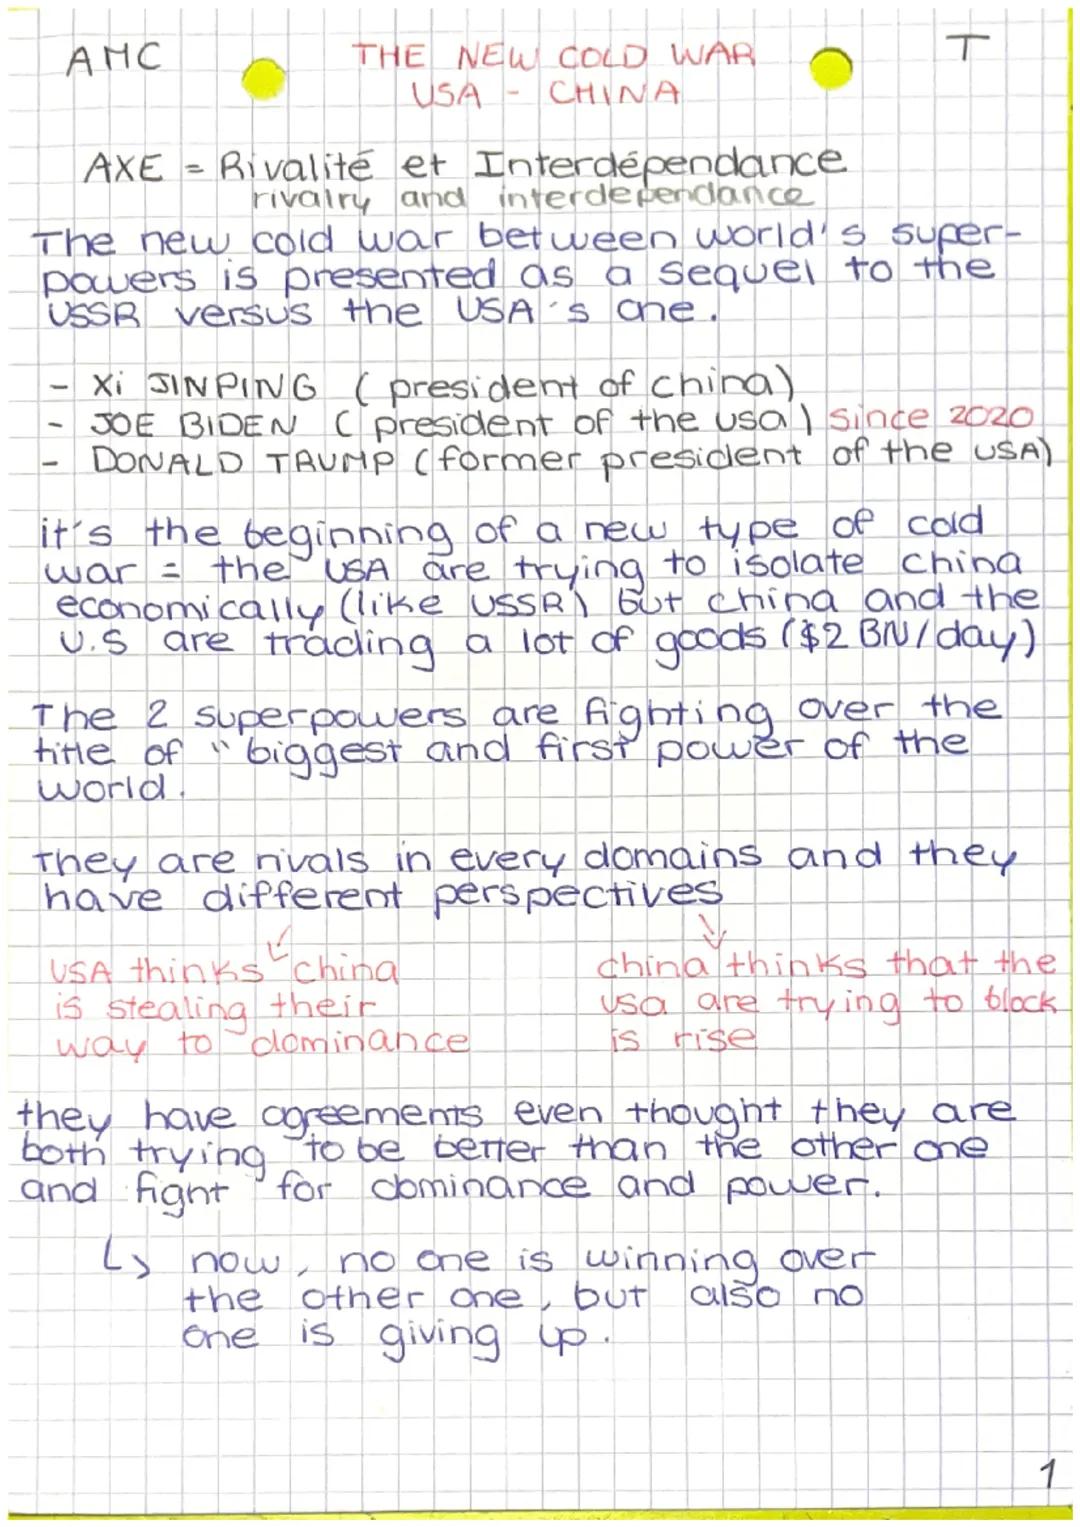 AMC
THE NEW COLD WAR
T
USA - CHINA
AXE = Rivalité et Interdépendance
rivalry and interdependance
The new cold war between world's super-
powers is presented as a sequel to the
USSR versus the USA's one.
- Xi JINPING (president of china)
- JOE BIDEN (president of the usa) since 2020
- DONALD TRUMP (former president of the USA)
it's the beginning of a new type of cold
war = the USA are trying to isolate china
economically (like USSR) but china and the
U.S are trading a lot of goods ($2 BN/day)
The 2 superpowers are fighting over the
title of "biggest and first power of the
world.
They are rivals in every domains and they
have different perspectives
USA thinks china
is stealing their
way to dominance
china thinks that the
usa are trying to block
is rise
they have agreements even thought they are
both trying to be better than the other one
and fight for dominance and power.
↳ now, no one is winning over
the other one, but also no
one is giving up.
1